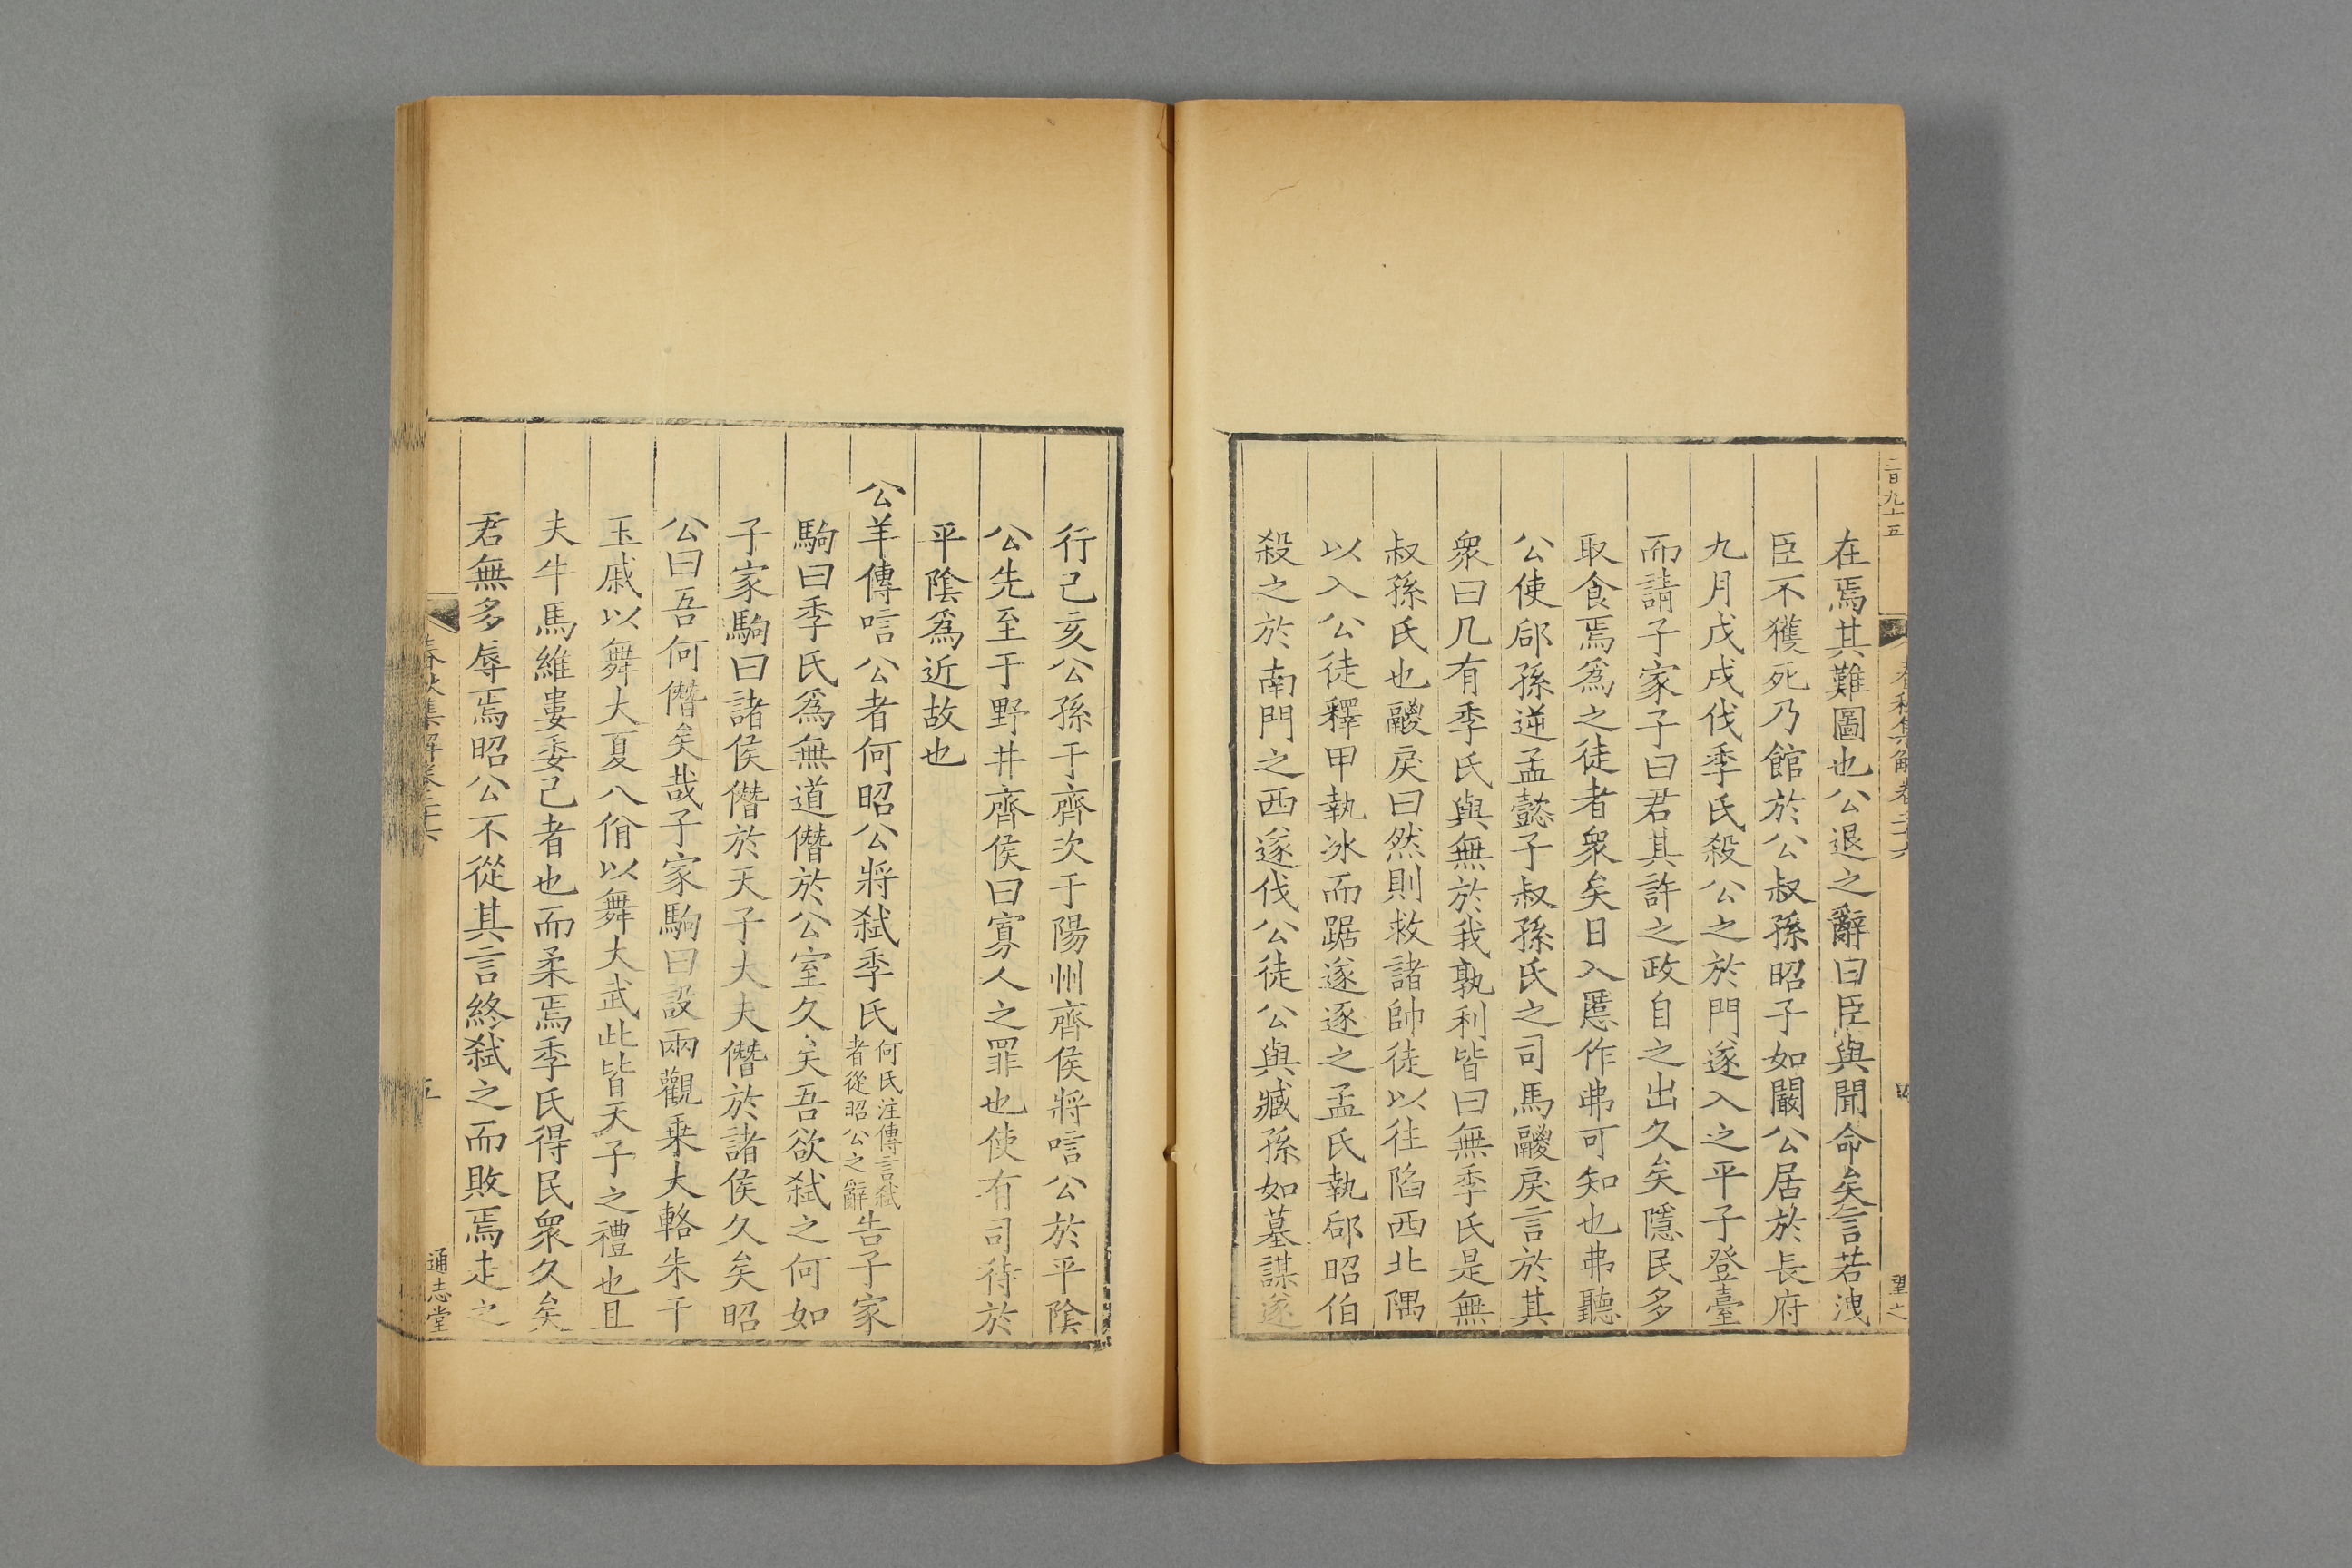 二百九十五
春秋集解卷二十六
四
在焉其難圖也公退之辭曰臣與聞命矣言若洩
臣不獲死乃館於公叔孫昭子如闞公居於長府
九月戊戌伐季氏殺公之於門遂入之平子登臺
而請子家子曰君其許之政自之出久矣隱民多
取食焉爲之徒者衆矣日入慝作弗可知也弗聽
公使郈孫逆孟懿子叔孫氏之司馬鬷戾言於其
衆曰凡有季氏與無於我孰利皆曰無季氏是無
叔孫氏也鬷戾曰然則救諸帥徒以往陷西北隅
以入公徒釋甲執冰而踞遂逐之孟氏執郈昭伯
殺之於南門之西遂伐公徒公與臧孫如墓謀遂
行己亥公孫于齊次于陽州齊侯將唁公於平陰
公先至于野井齊侯曰寡人之罪也使有司待於
平陰爲近故也
公羊傳唁公者何昭公將弒季氏何氏注傳言弒者從昭公之辭告子家
駒曰季氏爲無道僭於公室久矣吾欲弒之何如
子家駒曰諸侯僭於天子大夫僭於諸侯久矣昭
公曰吾何僭矣哉子家駒曰設兩觀乗大輅朱干
玉戚以舞大夏八佾以舞大武此皆天子之禮也且
夫牛馬維婁委己者也而柔焉季氏得民衆久矣
君無多辱焉昭公不從其言終弒之而敗焉走之
春秋集解卷二十六
五
通志堂